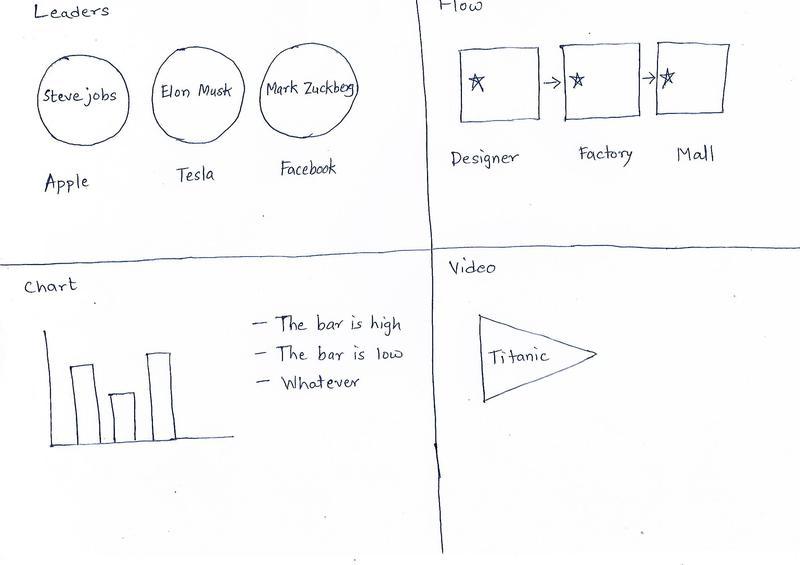 Leaders
Steve jobs
Elon Musk
Mark Zuckbeg
Apple
Tesla
Facebook
Flow
Designer
Factory
Mall
Chart
- The bar is high
- The bar is low
- Whatever
Video
Titanic